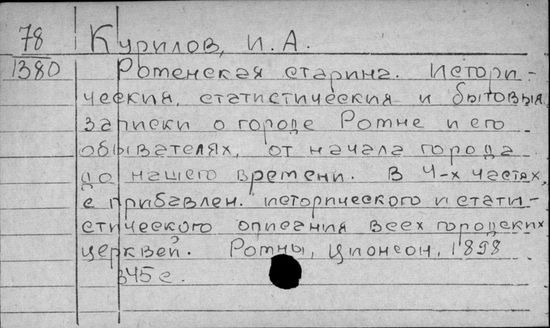 78 Курилов, И. А.
1380 Роменская старина. Истори-
ческия, статистическия и бытовыя
записки о городе Ромне и его
обывателях, от начала города
до нашего времени. В 4-х частях,
с прибавлен. исторического и стати-
стического описания всех городских
церквей. Ромны, Ционсон, 1898
345 с.